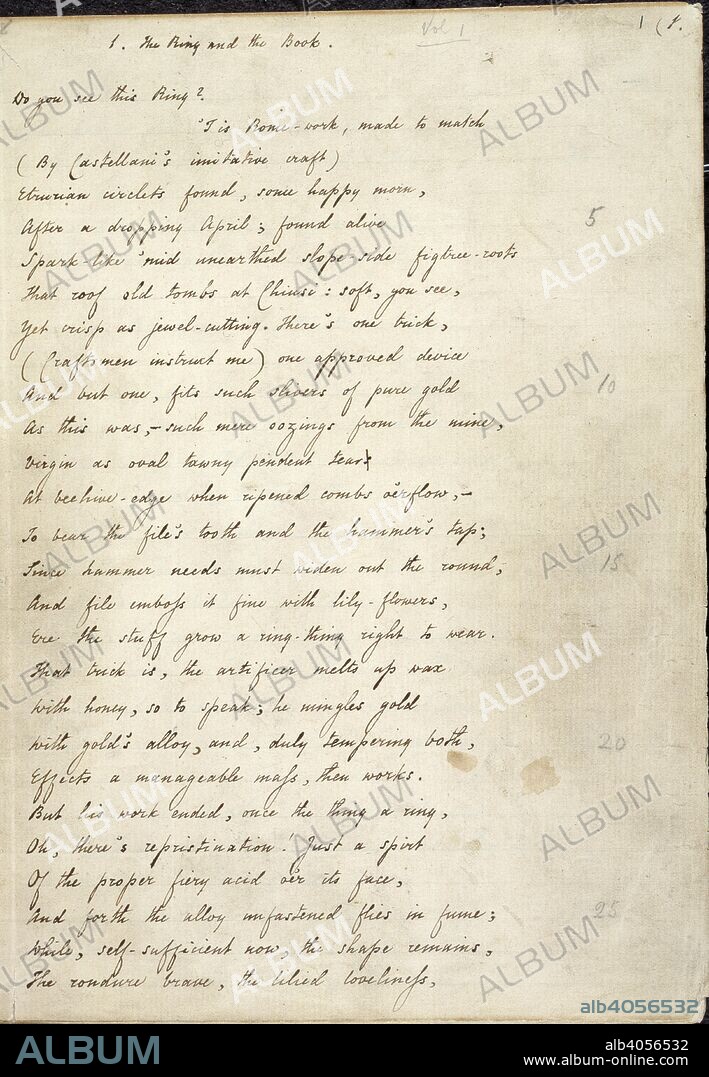 Vol 1
1 (1.
1. The Ring and the Book.
Do you see this Ring?
'T is Rome-work, made to match
(By Castellani's imitative craft)
Etrurian circlets found, some happy morn,
After a dropping April; found alive
5
Spark-like 'mid unearthed slope-side figtree-roots
That roof old tombs at Chiusi: soft, you see,
Yet crisp as jewel-cutting. There's one trick,
(Craftsmen instruct me) one approved device
And but one, fits such slivers of pure gold
10
As this was,—such mere oozings from the mine,
Virgin as oval tawny pendent tear
At beehive-edge when ripened combs o'erflow,—
To bear the file's tooth and the hammer's tap;
Since hammer needs must widen out the round,
15
And file emboss it fine with lily-flowers,
Ere the stuff grow a ring-thing right to wear.
That trick is, the artificer melts up wax
With honey, so to speak; he mingles gold
With gold's alloy, and, duly tempering both,
20
Effects a manageable mass, then works.
But his work ended, once the thing a ring,
Oh, there's repristination! Just a spirt
Of the proper fiery acid o'er its face,
And forth the alloy unfastened flies in fume;
25
While, self-sufficient now, the shape remains,
The rondure brave, the lilied loveliness,
ALBUM
alb4056532
ALBUM
alb4056532
www.album-online.com